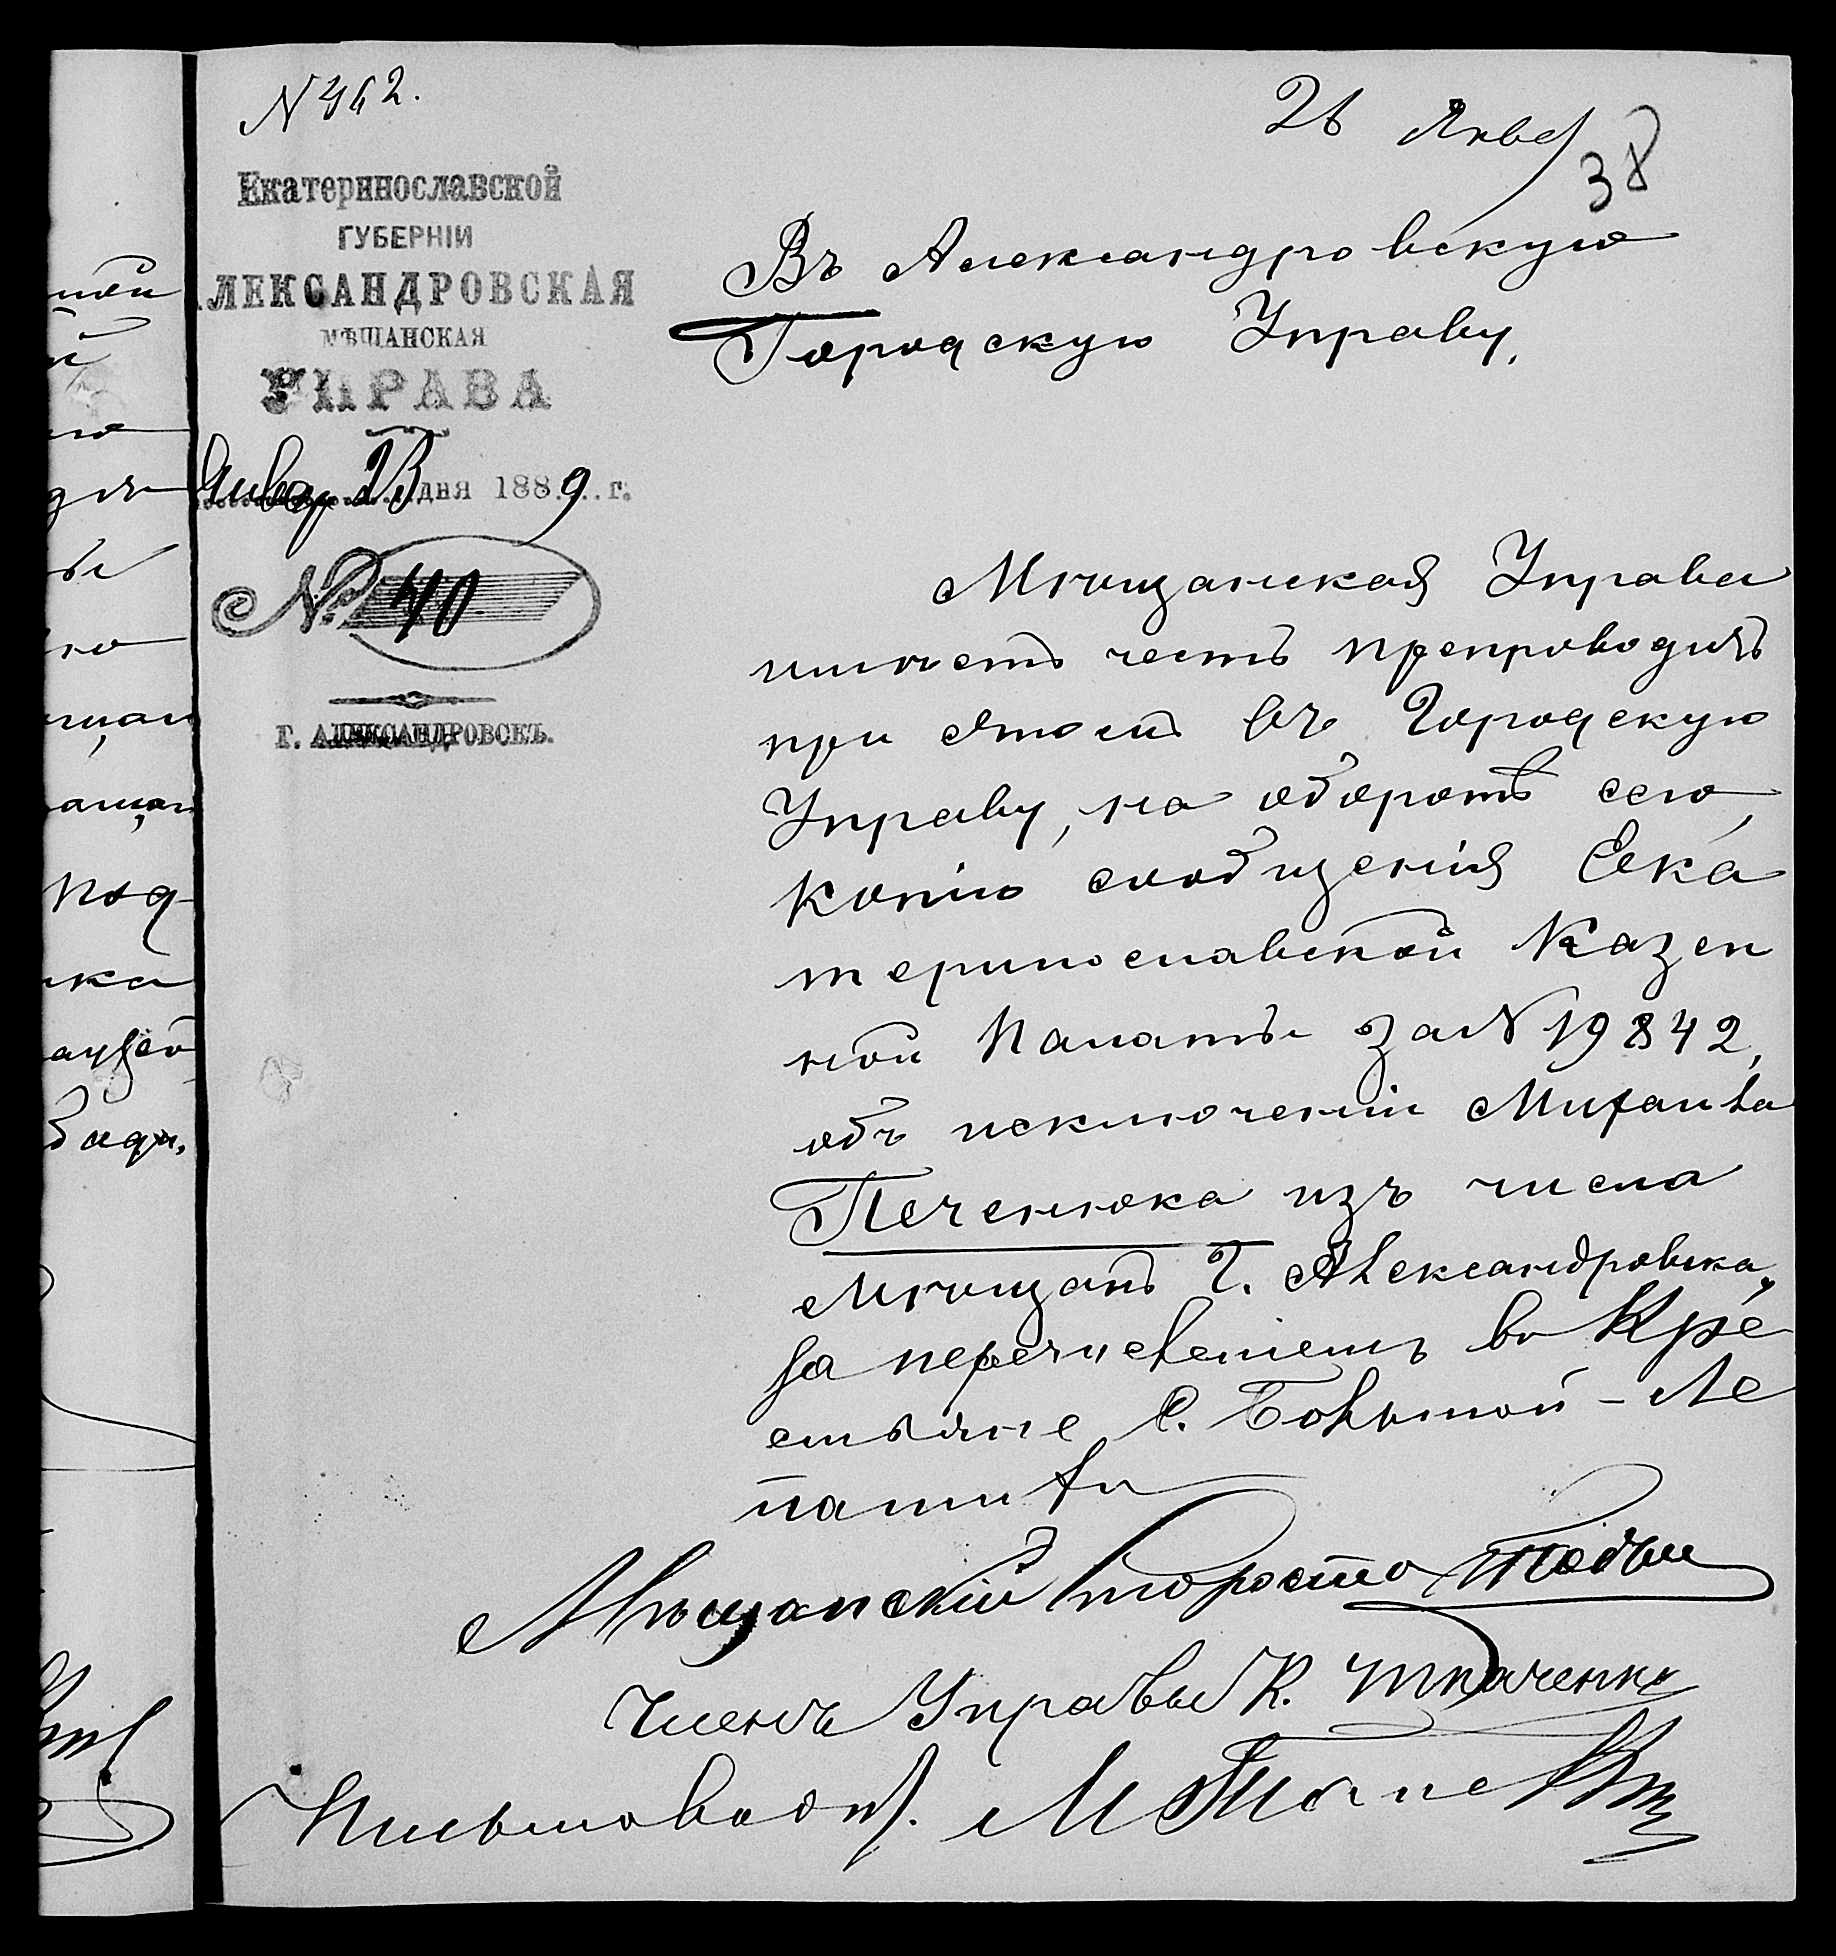 N 462.
26 Янва
38
Екатеринославской
ГУБЕРНІИ
АЛЕКСАНДРОВСКАЯ
МѢЩАНСКАЯ
УПРАВА
Январ 23 дня 1889 г.
№ 40
Г. АЛЕКСАНДРОВСКЪ.
Въ Александровскую
Городскую Управу.
Мѣщанская Управа
имѣетъ честь препроводить
при этомъ въ Городскую
Управу, на оборотѣ сего,
копію сообщенія Ека
теринославской Казен
ной Палаты за N 19842,
объ исключеніи Михаила
Печенюка изъ числа
Мѣщанъ Г. Александровска,
за перечисленіемъ въ Кре
стьяне С. Большой-Ле
патихи
Мѣщанскій Староста
Членъ Управы К. Ткаченко
Письмовод. М